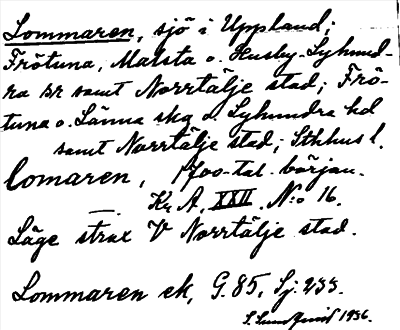 Lommaren, sjö i Uppland;
Frötuna, Malsta o. Husby-Lyhund-
ra sr samt Norrtälje stad; Frö-
tuna o. Länna skg o. Lyhundra hd
samt Norrtälje stad; Sthlms l.
lomaren, 1700-tal. början.
Kr. A. XXII. N:o 16.
Läge strax V Norrtälje stad.
Lommaren ek, G. 85, Sj: 233.
S. 1936.